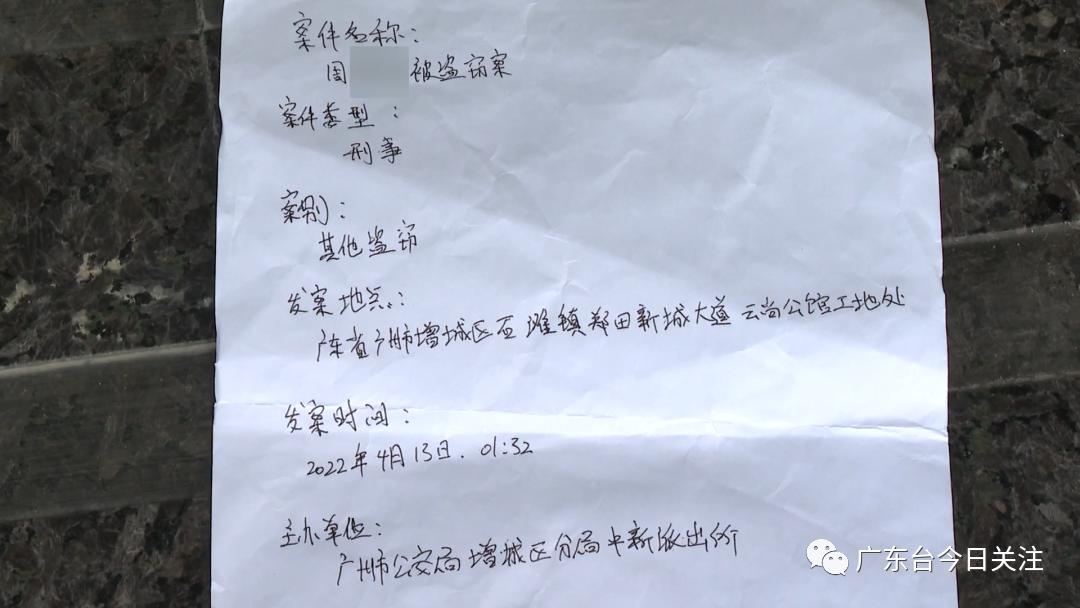 案件名称：
周 被盗窃案
案件类型：
刑事
案别：
其他盗窃
发案地点：
广东省广州市增城区石滩镇郑田新城大道云尚公馆工地处
发案时间：
2022年4月13日. 01:32
主办单位：
广州市公安局增城区分局中新派出所
广东台今日关注